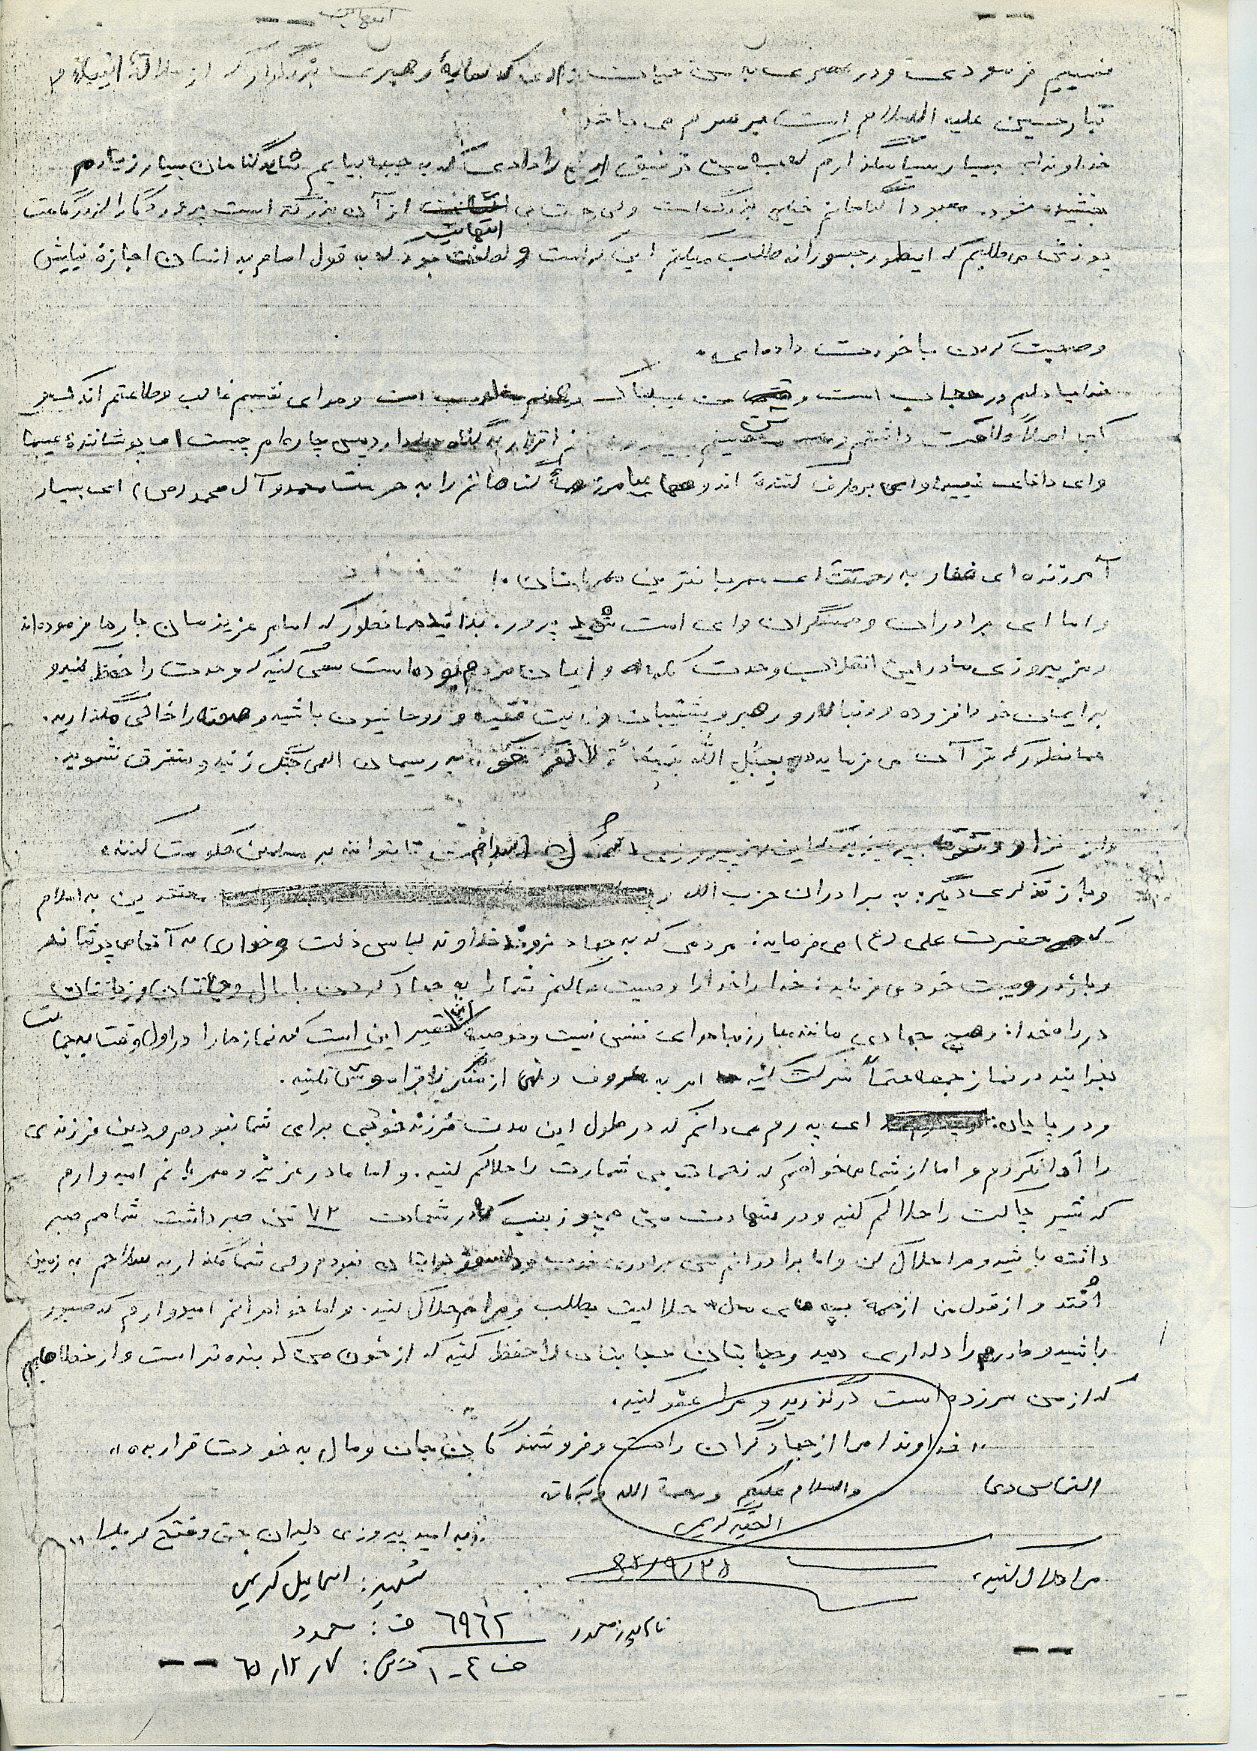 انتهایت
نصیبم فرمودی و در عصری به من حیات دادی که سایهٔ رهبری بزرگوار که از سلالهٔ
تبار حسین علیه السلام است بر سرم می باشد.
خداوندا بسیار سپاسگذارم که به من توفیق این را دادی که به جبهه بیایم شاید گناهان بسیار زیادم
بخشیده شود. معبودا گناهانم خیلی بزرگ است ولی رحمت بی انتهایت از آن بزرگتر است پروردگارا از درگاهت
پوزش می طلبم که اینطور جسورانه طلب میکنم این کرامت و لطف خود که به قول امام به انسان اجازهٔ نیایش
و صحبت کردن با خودت داده‌ای.
خدایا دلم در حجاب است و نفس من عیبناک و عقلم مغلوب است و هوای نفسم غالب و طاعتم اندک
اقرار به گناه دارد پس چاره‌ام چیست ای پوشانندهٔ عیبها
و ای دانای غیبها و ای برطرف کنندهٔ اندوهها بیامرز همهٔ گناهانم را به حرمت محمد و آل محمد (ص) ای بسیار
آمرزنده ای غفار به رحمتت ای مهربانترین مهربانان.!
و اما ای برادران و همسنگران و ای امت شهید پرور. بدانید همانطور که امام عزیزمان بارها فرموده‌اند
رمز پیروزی ما در این انقلاب وحدت کلمه و ایمان مردم بوده است سعی کنید که وحدت را حفظ کنید و
بر ایمان خود افزوده و دنباله رو رهبر و پشتیبان ولایت فقیه و روحانیون باشید و صحنه را خالی نگذارید.
همانطور که قرآن می فرماید به ریسمان الهی چنگ زنید و متفرق نشوید.
و از تفرقه بپرهیزید که این رمز پیروزی تا نتوانند بر مسلمین حکومت کنند.
و باز تذکری دیگر: به برادران حزب الله و معتقدین به اسلام
که حضرت علی (ع) می فرماید: مردمی که به جهاد نروند خداوند لباس ذلت و خواری به آنها می پوشاند
و باز در وصیت خود می فرماید: خدا را خدا را وصیت میکنم شما را به جهاد کردن با مال و جانتان و زبانتان
در راه خدا: و هیچ جهادی مانند مبارزه با هوای نفس نیست و توصیه این حقیر این است که نماز ها را در اول وقت به جماعت
بخوانید در نماز جمعه حتماً شرکت کنید امر به معروف و نهی از منکر را فراموش نکنید.
و در پایان: ای پدرم می دانم که در طول این مدت فرزند خوبی برای شما نبودم و دین فرزندی
را ادا نکردم و اما از شما می خواهم که زحمات بی شمارت را حلالم کنید. و اما مادر عزیز و مهربانم امیدوارم
که شیر پاکت را حلالم کنید و در شهادت من همچو زینب که در شهادت ۷۲ تن صبر داشت شما هم صبر
داشته باشید و مرا حلال کن و اما برادرانم من برادری خوب و دلسوز برایتان نبودم ولی شما نگذارید سلاحم به زمین
افتد و از قول من از همهٔ بچه های محل حلالیت بطلب و مرا هم حلال کنید. و اما خواهرانم امیدوارم که صبور
باشید و مادرم را دلداری دهید و حجابتان حجابتان را حفظ کنید که از خون من که بنده تر است و از خطاهایم
که از من سرزده است درگذرید و مرا عفو کنید.
" خداوندا مرا از جهادگران راهت و فروشندگان جان و مال به خودت قرار بده "
التماس دعا والسلام علیکم و رحمة الله و برکاته
الحقیر کریمی
" به امید پیروزی دلیران حق و فتح کربلا "
مرا حلال کنید.
شهید: اسماعیل کریمی
نام پدر: محمود ۶۹۶۲ ف: محمود